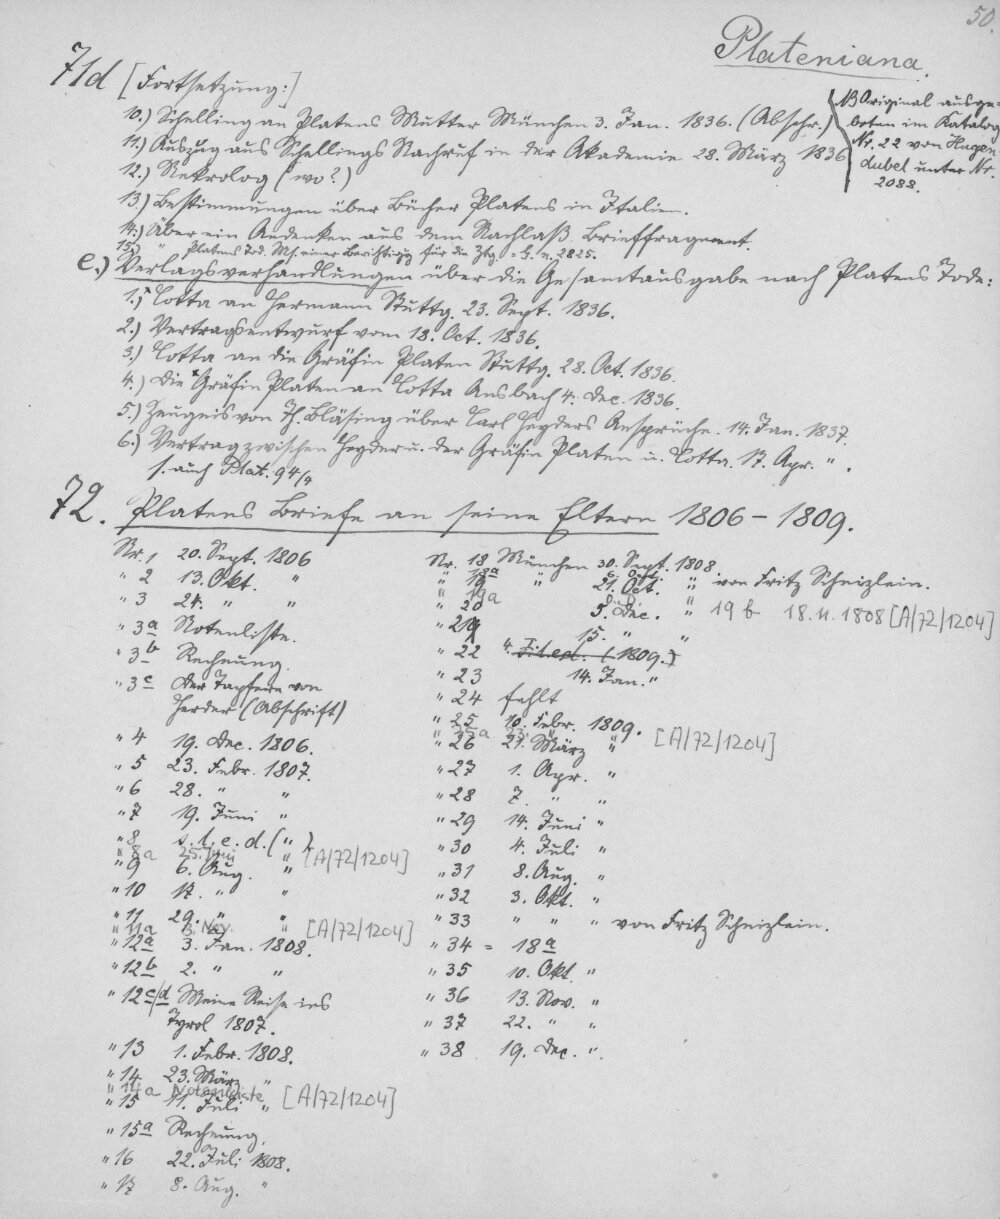 50.
Plateniana.
71d [Fortsetzung:]
10.) Schelling an Platens Mutter München 3. Jan. 1836. (Abschr.)
NB Original ausge-
boten im Katalog
Nr. 22 von Hugen
dubel unter Nr.
2088.
11.) Auszug aus Schellings Nachruf in der Akademie 28. März 1836
12.) Nekrolog (wo?)
13.) Bestimmungen über Bücher Platens in Italien.
14.) Über ein Andenken aus dem Nachlaß. Brieffragment.
15.) " Platens Tod. Ms. einer Berichtigg für die Ztg. = G. n. 2825.
e.) Verlagsverhandlungen über die Gesamtausgabe nach Platens Tode:
1.) Cotta an Hermann Stuttg. 23. Sept. 1836.
2.) Vertragsentwurf vom 18. Oct. 1836.
3.) Cotta an die Gräfin Platen Stuttg. 28. Oct. 1836.
4.) Die Gräfin Platen an Cotta Ansbach 4. Dec. 1836.
5.) Zeugnis von Th. Bläsing über Carl Heyders Ansprüche. 14. Jan. 1837.
6.) Vertrag zwischen Heyder u. der Gräfin Platen u. Cotta. 17. Apr. ".
s. auch Plat. 94/4
72. Platens Briefe an seine Eltern 1806-1809.
Nr. 1 20. Sept. 1806
" 2 13. Okt. "
" 3 24. " "
" 3a Notenliste.
" 3b Rechnung.
" 3c Der Tapfere von
Herder (Abschrift)
" 4 19. Dec. 1806.
" 5 23. Febr. 1807.
" 6 28. " "
" 7 19. Juni "
" 8 s. l. e. d. (")
" 8a 25. Juni " [A/72/1204]
" 9 6. Aug. "
" 10 17. " "
" 11 29. " "
" 11a 3. Nov. [A/72/1204]
" 12a 3. Jan. 1808.
" 12b 2. " "
" 12c/d Meine Reise ins
Tyrol 1807.
" 13 1. Febr. 1808.
" 14 23. März "
" 14a Notenliste [A/72/1204]
" 15 11. Juli "
" 15a Rechnung.
" 16 22. Juli 1808.
" 17 8. Aug. "
Nr. 18 München 30. Sept. 1808
" 18a " 6. Oct. " von Fritz Schnizlein.
" 19 21. Oct. "
" 19a
" 20 5. Dec. " 19b 18.11.1808 [A/72/1204]
" 21 15. " "
" 22 s. l. e. d. (1809.)
" 23 14. Jan. "
" 24 fehlt
" 25 10. Febr. 1809.
" 25a 23. " [A/72/1204]
" 26 21. März "
" 27 1. Apr. "
" 28 7. " "
" 29 14. Juni "
" 30 4. Juli "
" 31 8. Aug. "
" 32 3. Okt. "
" 33 " " " von Fritz Schnizlein.
" 34 = 18a
" 35 10. Okt. "
" 36 13. Nov. "
" 37 22. " "
" 38 19. Dec. ".